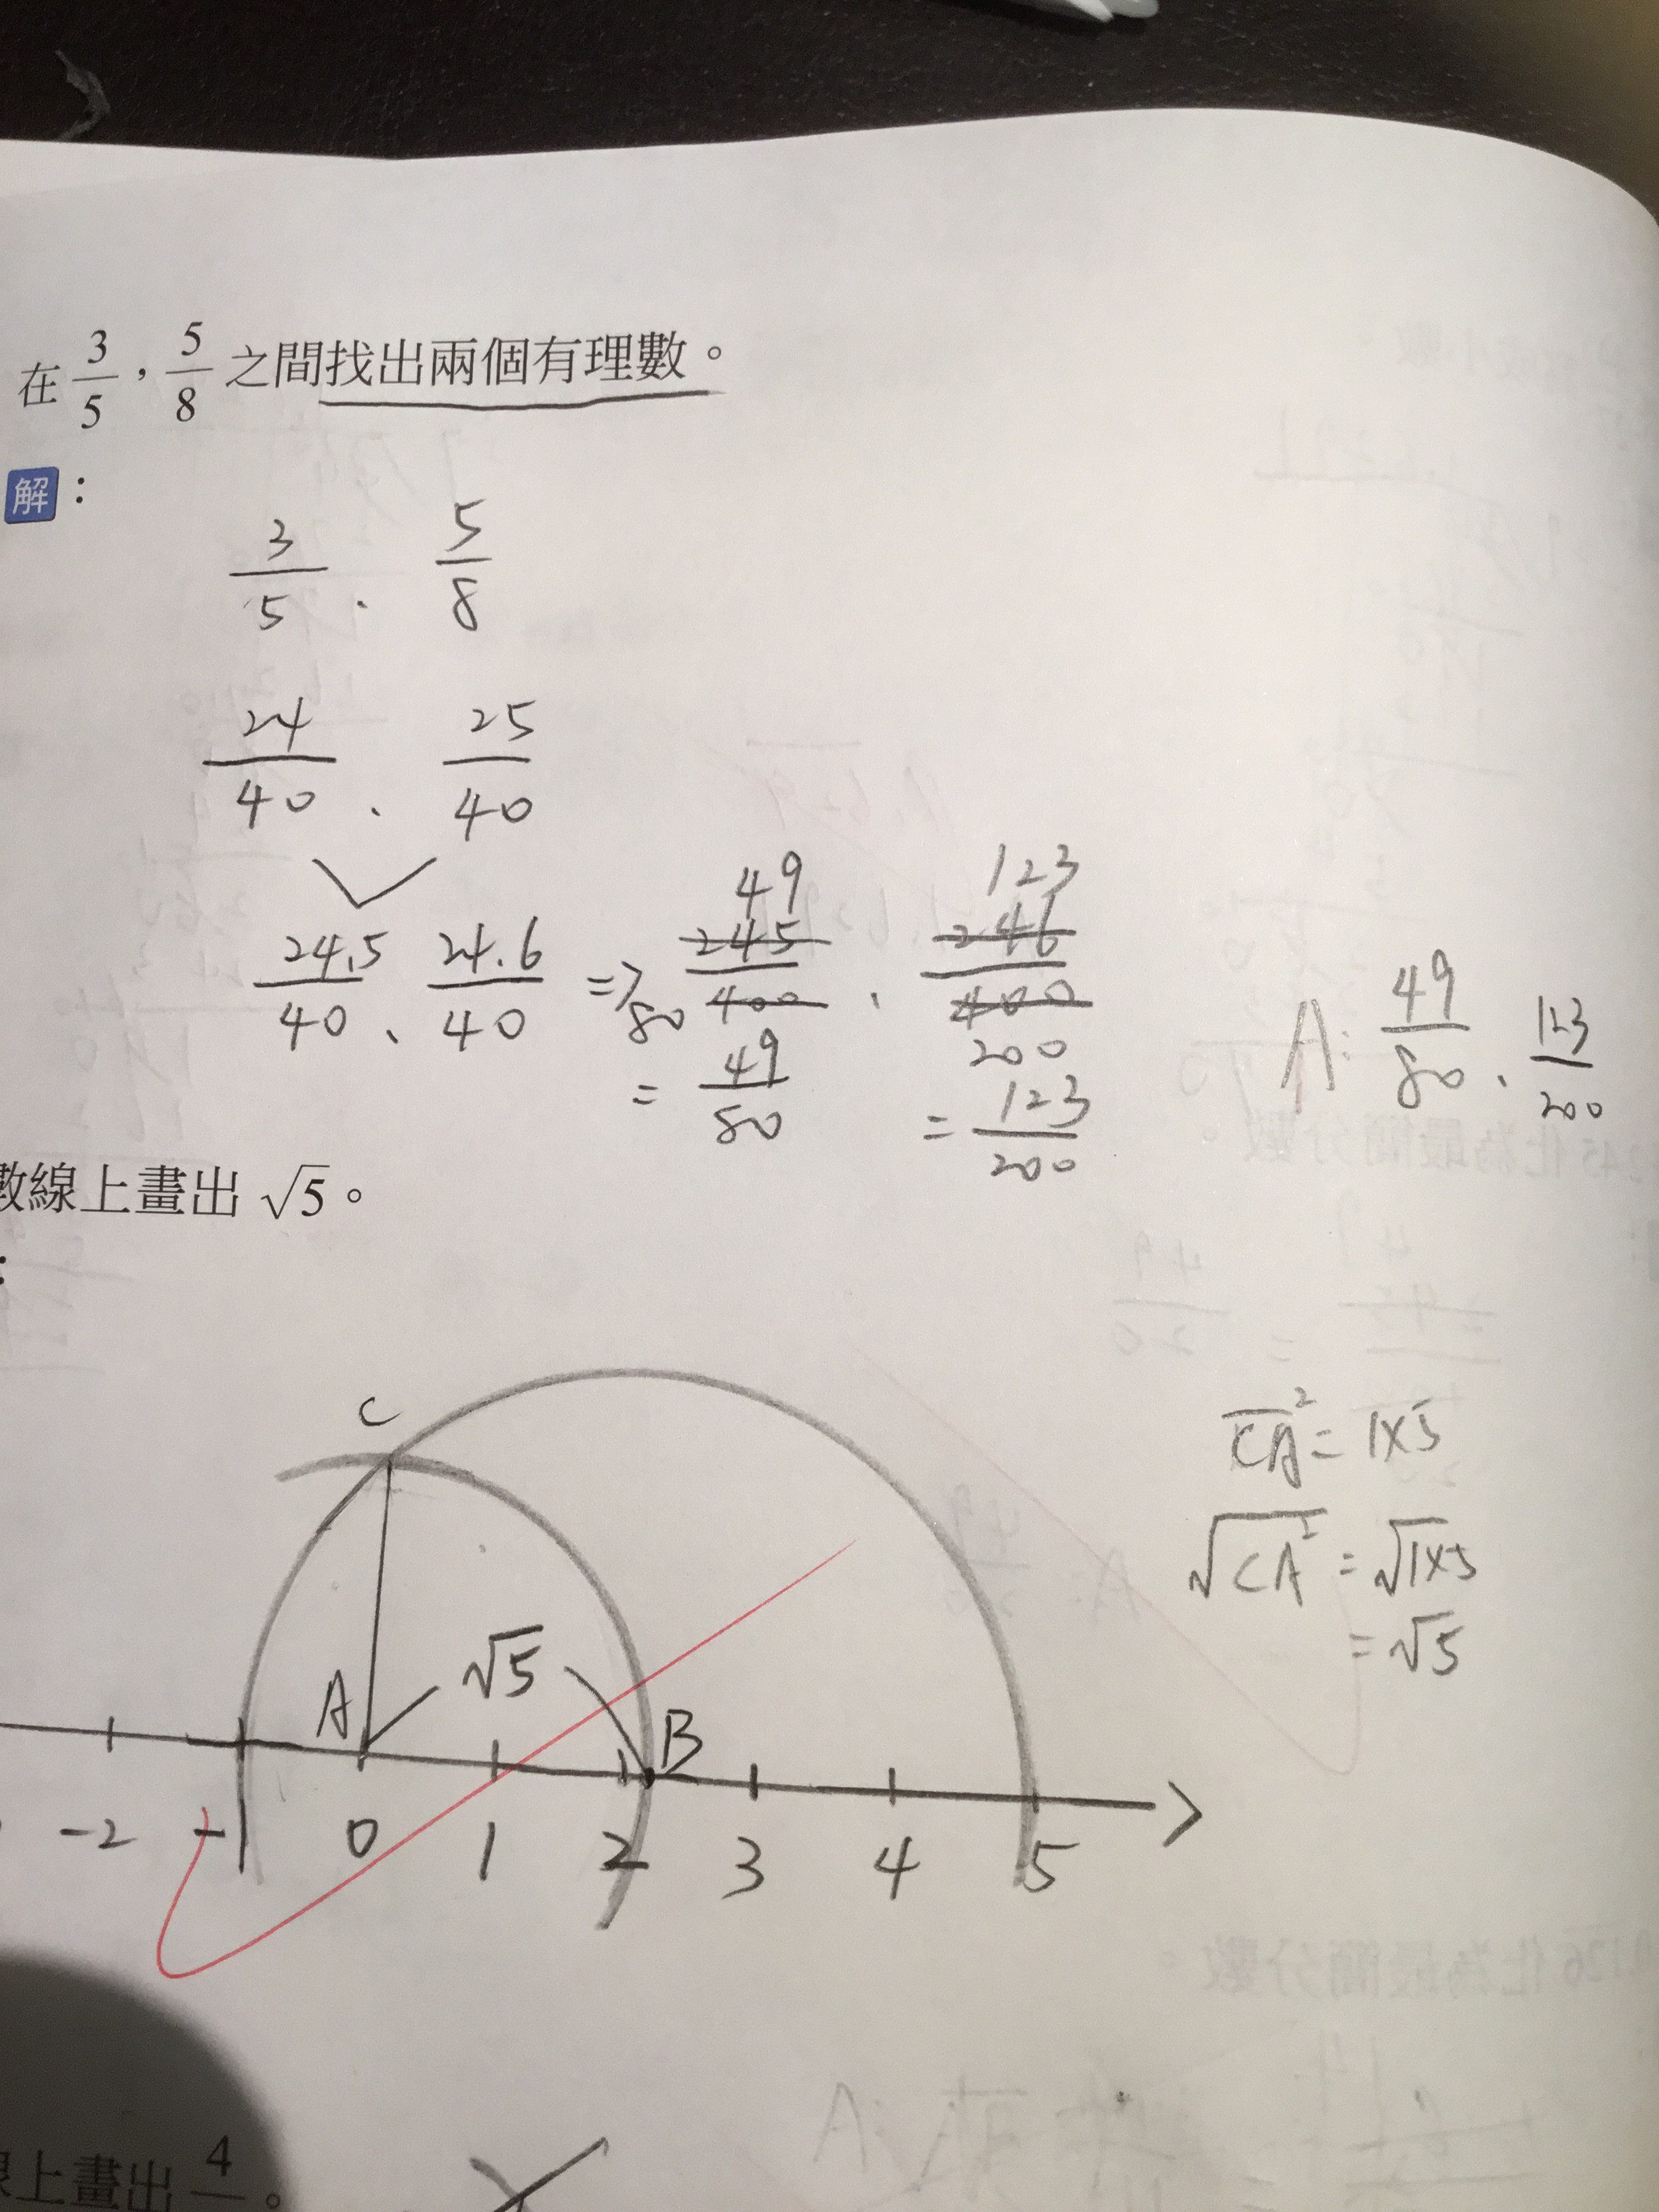 在 3/5 , 5/8 之間找出兩個有理數。
解：
3/5 、 5/8
24/40 、 25/40
24.5/40 、 24.6/40 => 245/400 49 80 、 246/400 123 200
= 49/80 = 123/200
A: 49/80 、 123/200
數線上畫出 √5。
:
C
CA² = 1×5
√CA² = √1×5
= √5
A √5 B
-2 -1 0 1 2 3 4 5
線上畫出 4 。